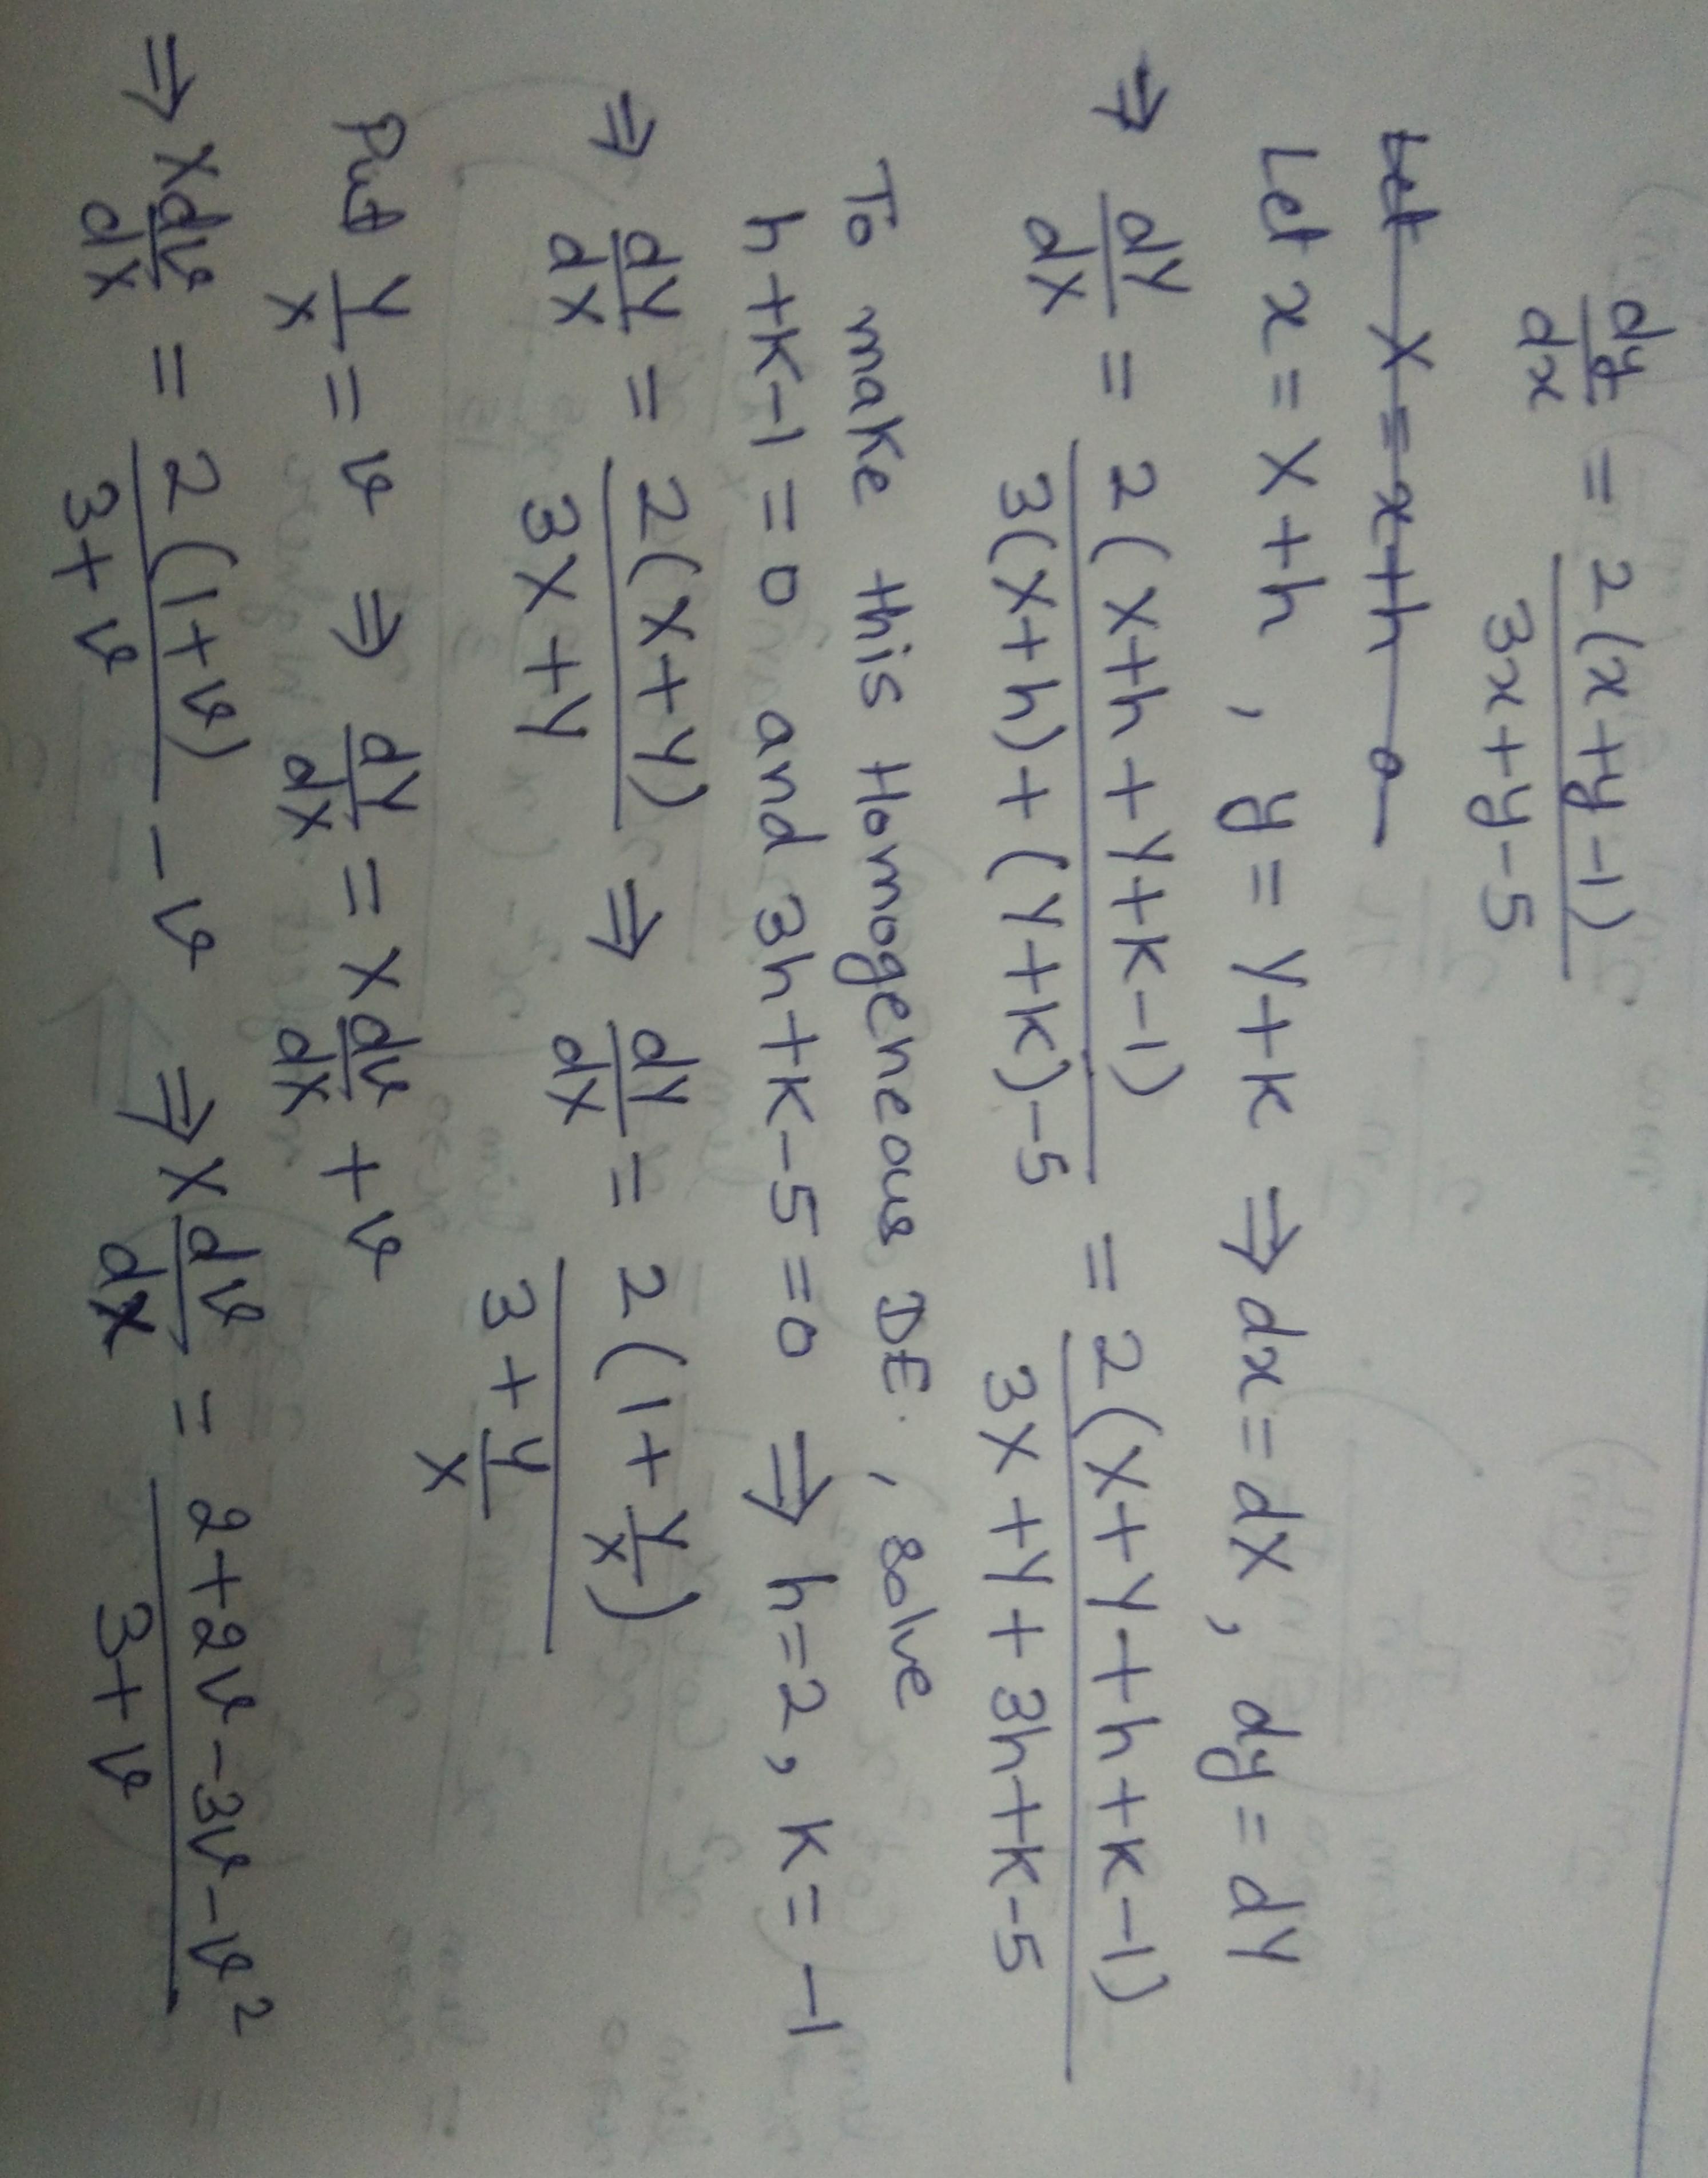 dy/dx = 2(x+y-1)/3x+y-5
Let X = x+h a
Let x = X+h , y = Y+k ⇒ dx = dX , dy = dY
⇒ dY/dX = 2(X+h+Y+k-1)/3(X+h)+(Y+k)-5 = 2(X+Y+h+k-1)/3X+Y+3h+k-5
To make this Homogeneous DE. , solve
h+k-1=0 and 3h+k-5=0 ⇒ h=2, k=-1
⇒ dY/dX = 2(X+Y)/3X+Y ⇒ dY/dX = 2(1+Y/X)/3+Y/X
Put Y/X = v ⇒ dY/dX = X dv/dX + v
⇒ X dv/dX = 2(1+v)/3+v - v ⇒ X dv/dX = 2+2v-3v-v²/3+v